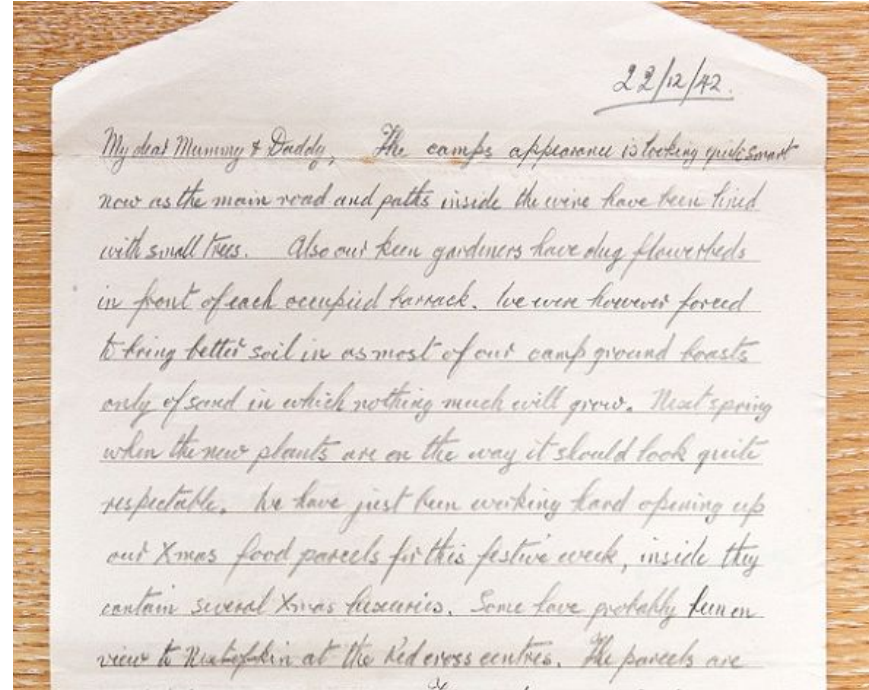 22/12/42.
My dear Mummy & Daddy, The camps appearance is looking quite smart
now as the main road and paths inside the wire have been lined
with small trees. Also our keen gardiners have dug flowerbeds
in front of each occupied barrack. We were however forced
to bring better soil in as most of our camp ground boasts
only of sand in which nothing much will grow. Next spring
when the new plants are on the way it should look quite
respectable. We have just been working hard opening up
our Xmas food parcels for this festive week, inside they
contain several Xmas luxuries. Some have probably been on
view to Next of kin at the Red cross centres. The parcels are